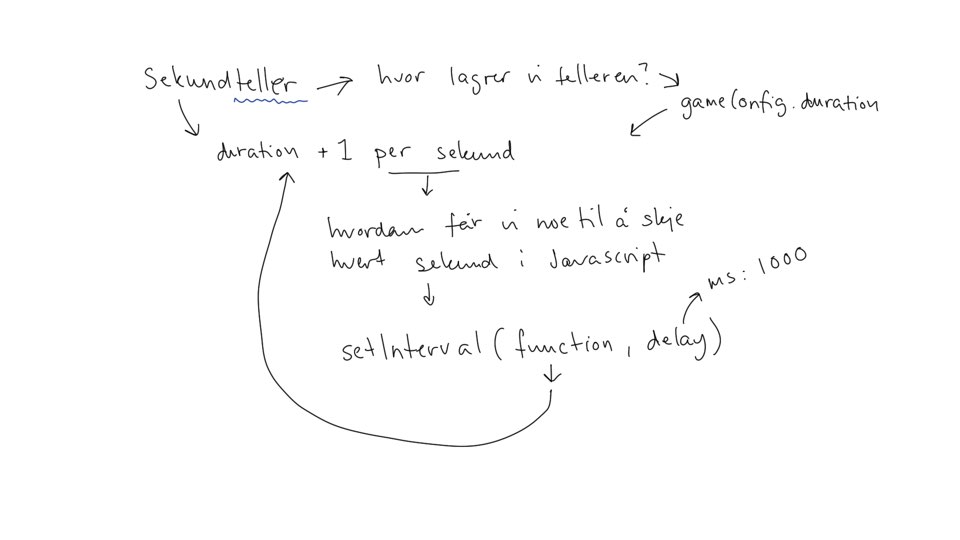 Sekundteller → hvor lagrer vi telleren?
gameConfig.duration
duration + 1 per sekund
hvordan får vi noe til å skje
hvert sekund i Javascript
ms: 1000
setInterval(function, delay)